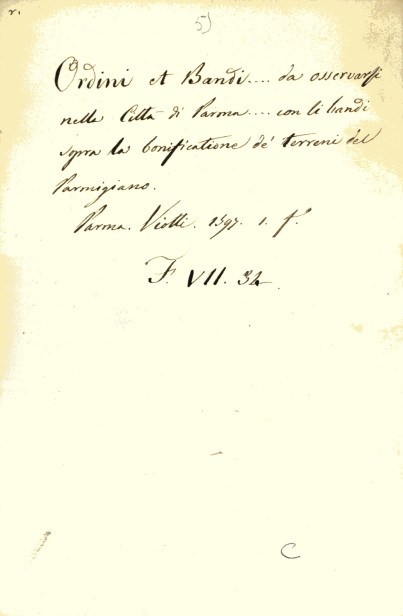 r.
5)
Ordini et Bandi.... da osservarsi
nelle Città di Parma.... con li bandi
sopra la bonificatione de' terreni del
Parmigiano.
Parma. Viotti. 1597. 1. f.°
F. VII. 34
C